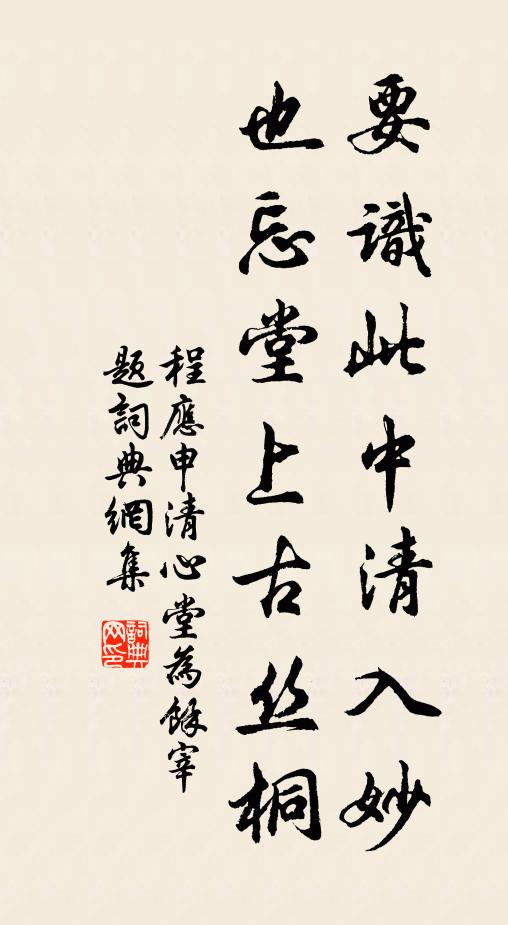 要識此中清入妙
也忘堂上古丝桐
程應申清心堂為餘宰
題詞典網集
詞典
网印